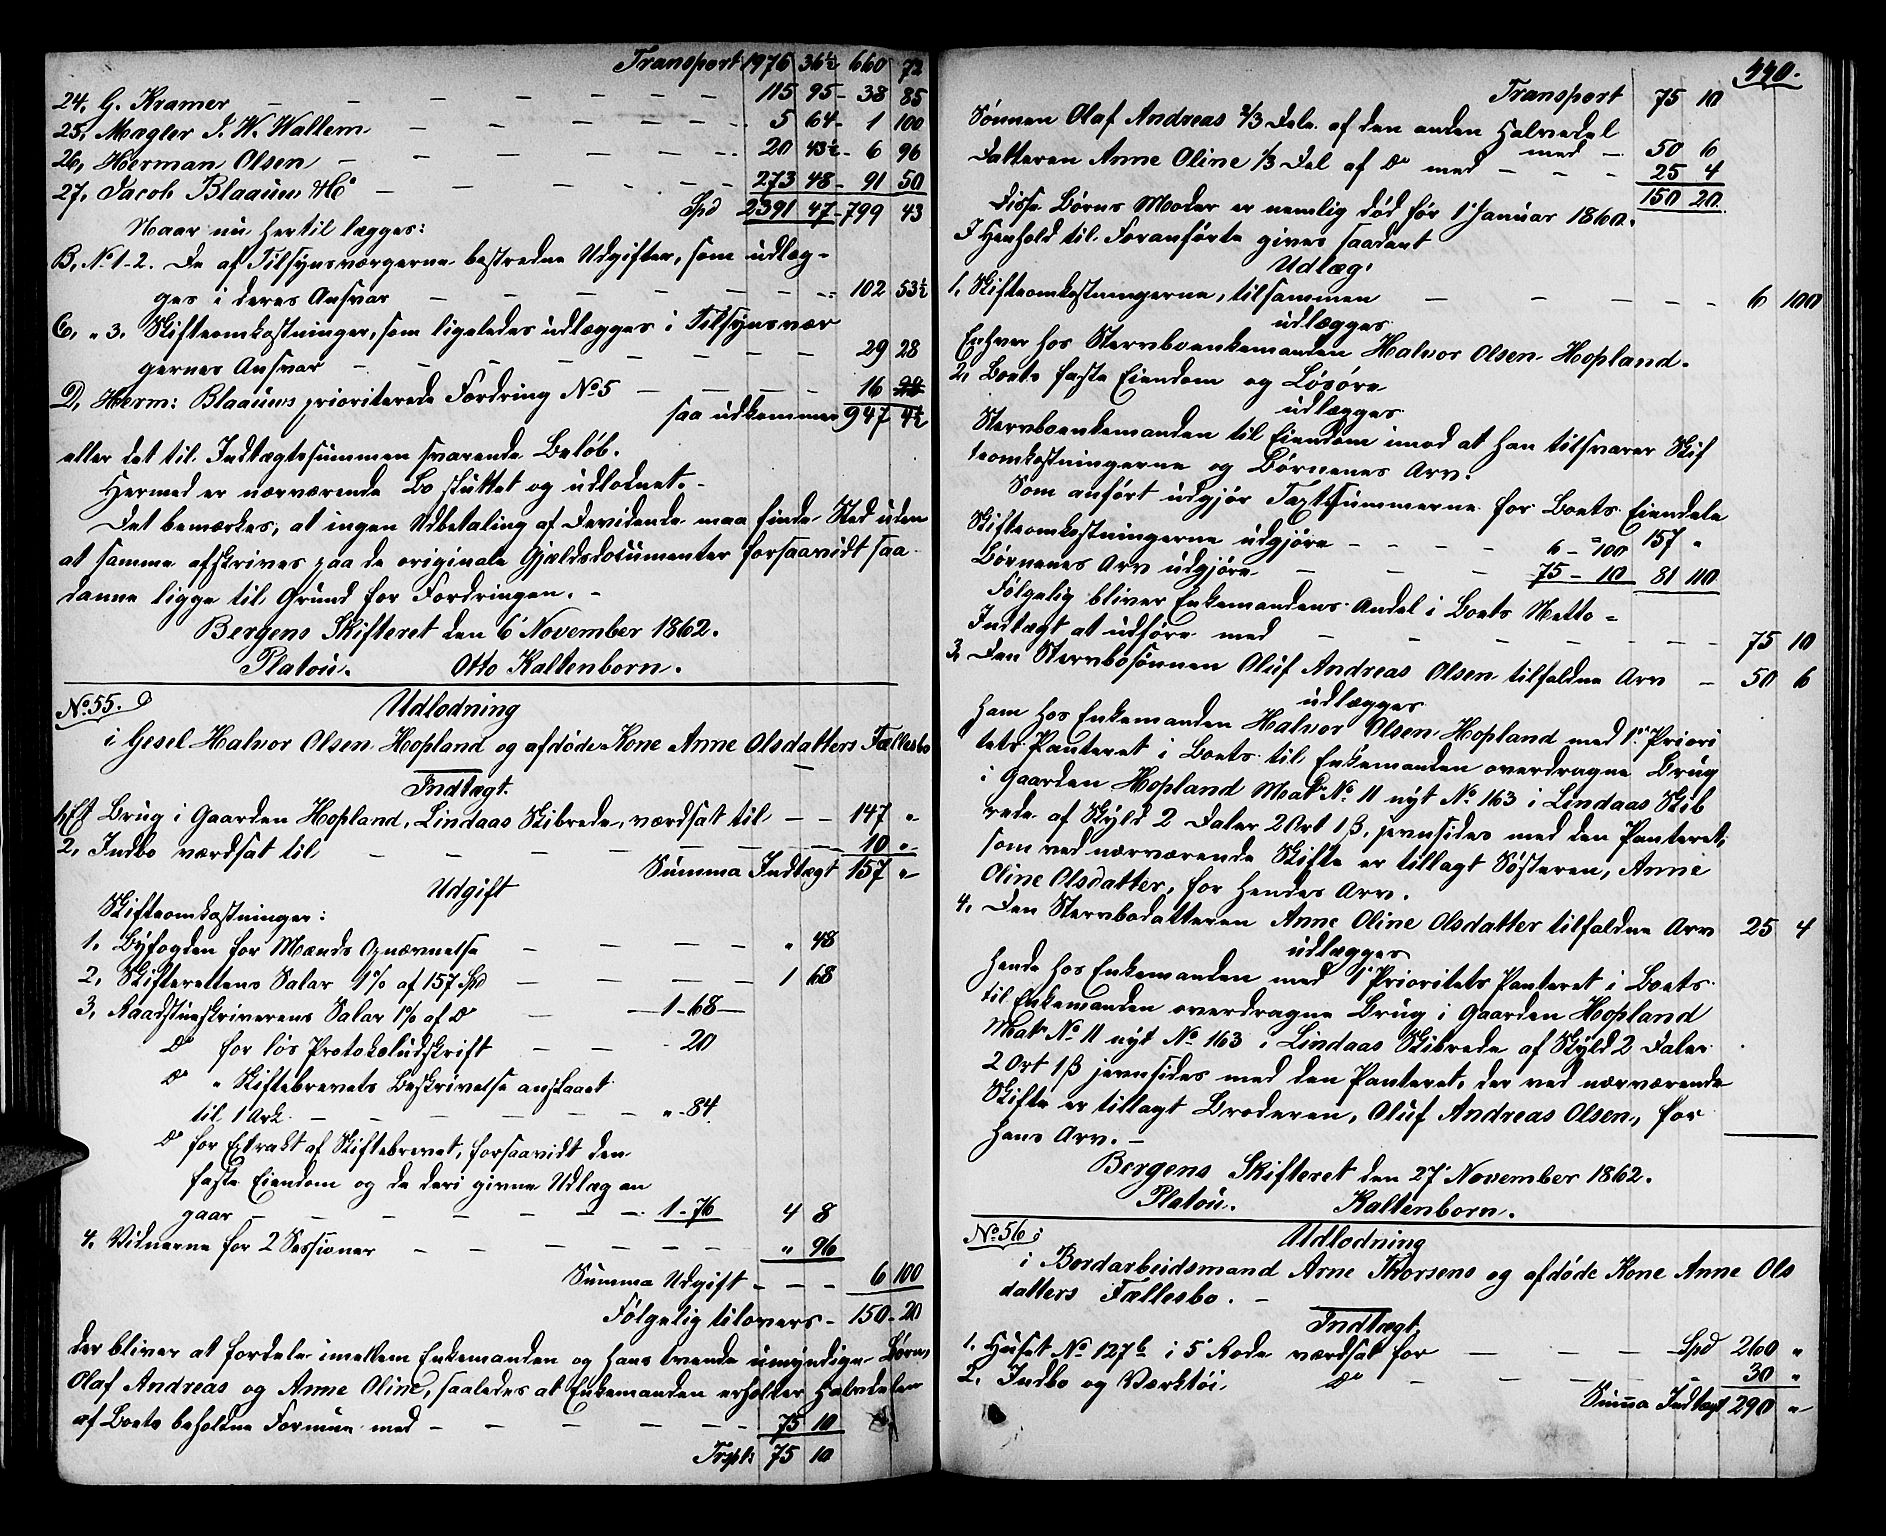 Transport 1976 36½ 660 72
24, G. Kramer — — — 115 95 - 38 85
25, Mægler J. W. Wallem — — 5 64 - 1 100
26, Herman Olsen — — 20 43½ - 6 96
27, Jacob Blaauw & Co — — 273 48 - 91 50
Spd 2391 47 - 799 43
Naar nu hertil lægges:
B, No 1-2. De af Tilsynsværgerne bestredne Udgifter, som udlæg-
ges i deres Ansvar — — 102 53½
C, " 3. Skifteomkostninger, som ligeledes udlægges i Tilsynsvær
gernes Ansvar — — 29 28
D, Herm: Blaauws prioriterede Fordring No 5 — — 16
saa udkommer 947 4½
eller det til Indtægtssummen svarende Beløb.
Hermed er nærværende Bo sluttet og udloddet. -
Det bemærkes, at ingen Udbetaling af Devidende maa finde Sted uden
at samme afskrives paa de originale Gjældsdocumenter forsaavidt saa-
danne ligge til Grund for Fordringen. -
Bergens Skifteret den 6' November 1862.
Platou. Otto Kaltenborn.
No. 55. Udlodning
i Gesel Halvor Olsen Hopland og afdøde Kone Anne Olsdatters Fællesbo
Indtægt.
1, Et Brug i Gaarden Hopland, Lindaas Skibrede, værdsat til — — 147 "
2, Indbo værdsat til — — 10 "
Summa Indtægt 157 "
Udgift
Skifteomkostninger:
1. Byfogden for Mænds Opnævnelse — — " 48
2, Skifterettens Salar 1% af 157 Spd — — 1 68
3, Raadstueskriverens Salar 1% af Do — 1-68 —
Do for løs Protokoludskrift — — - 20
Do " Skiftebrevets Beskrivelse anslaaet
til 1 Ark. — — " - 84.
Do for Extrakt af Skiftebrevet, forsaavidt den
faste Eiendom og de deri givne Udlæg an
gaar — — 1-76 4 8
4. Vidnerne for 2 Sessioner — — " 96
Summa Udgift — — 6 100
Følgelig tilovers - 150 - 20
der bliver at fordele imellem Enkemanden og hans tvende umyndige Børn,
Olaf Andreas og Anne Oline, saaledes at Enkemanden erholder Halvdelen
af Boets beholdne Formue med — — 75 10
Trspt: 75 10
440.
Transport 75 10
Sønnen Olaf Andreas 2/3 Dele af den anden Halvedel
med — 50 6
Datteren Anne Oline 1/3 Del af Do med — — 25 4
150 20
Disse Børns Moder er nemlig død før 1' Januar 1860.
I Henhold til Foranførte gives saadant
Udlæg:
1. Skifteomkostningerne, tilsammen — — 6 100
udlægges
Enhver hos Stervboenkemanden Halvor Olsen Hopland.
2, Boets faste Eiendom og Løsøre
udlægges
Stervboenkemanden til Eiendom imod at han tilsvarer Skif
teomkostningerne og Børnenes Arv.
Som anført udgjør Taxtsummerne for Boets Eiendele
157 "
Skifteomkostningerne udgjøre — — 6 - 100
Børnenes Arv udgjøre — — 75 - 10 81 110
Følgelig bliver Enkemandens Andel i Boets Netto-
Indtægt at udføre med — — 75 10
3, Den Stervbosønnen Oluf Andreas Olsen tilfaldne Arv — 50 6
udlægges
ham hos Enkemanden Halvor Olsen Hopland med 1' Priori
tets Panteret i Boets til Enkemanden overdragne Brug
i Gaarden Hopland Mat: No 11 nyt No 163 i Lindaas Skib
rede af Skyld 2 Daler 2 Ort 1 ß, jevnsides med den Panteret,
som ved nærværende Skifte er tillagt Søsteren, Anne
Oline Olsdatter, for hendes Arv.
4. Den Stervbodatteren Anne Oline Olsdatter tilfaldne Arv 25 4
udlægges
hende hos Enkemanden med 1' Prioritets Panteret i Boets
til Enkemanden overdragne Brug i Gaarden Hopland
Mat: No 11 nyt No 163 i Lindaas Skibrede af Skyld 2 Daler
2 Ort 1 ß jevnsides med den Panteret, der ved nærværende
Skifte er tillagt Broderen, Oluf Andreas Olsen, for
hans Arv. -
Bergens Skifteret den 27' November 1862.
Platou. Kaltenborn.
No. 56. Udlodning
i Bordarbeidsmand Arne Thorsens og afdøde Kone Anne Ols
datters Fællesbo. -
Indtægt
1. Huset No 127b i 5' Rode værdsat for — — Spd 260 "
2. Indbo og Værktøi Do — — 30 "
Summa Indtægt 290 "